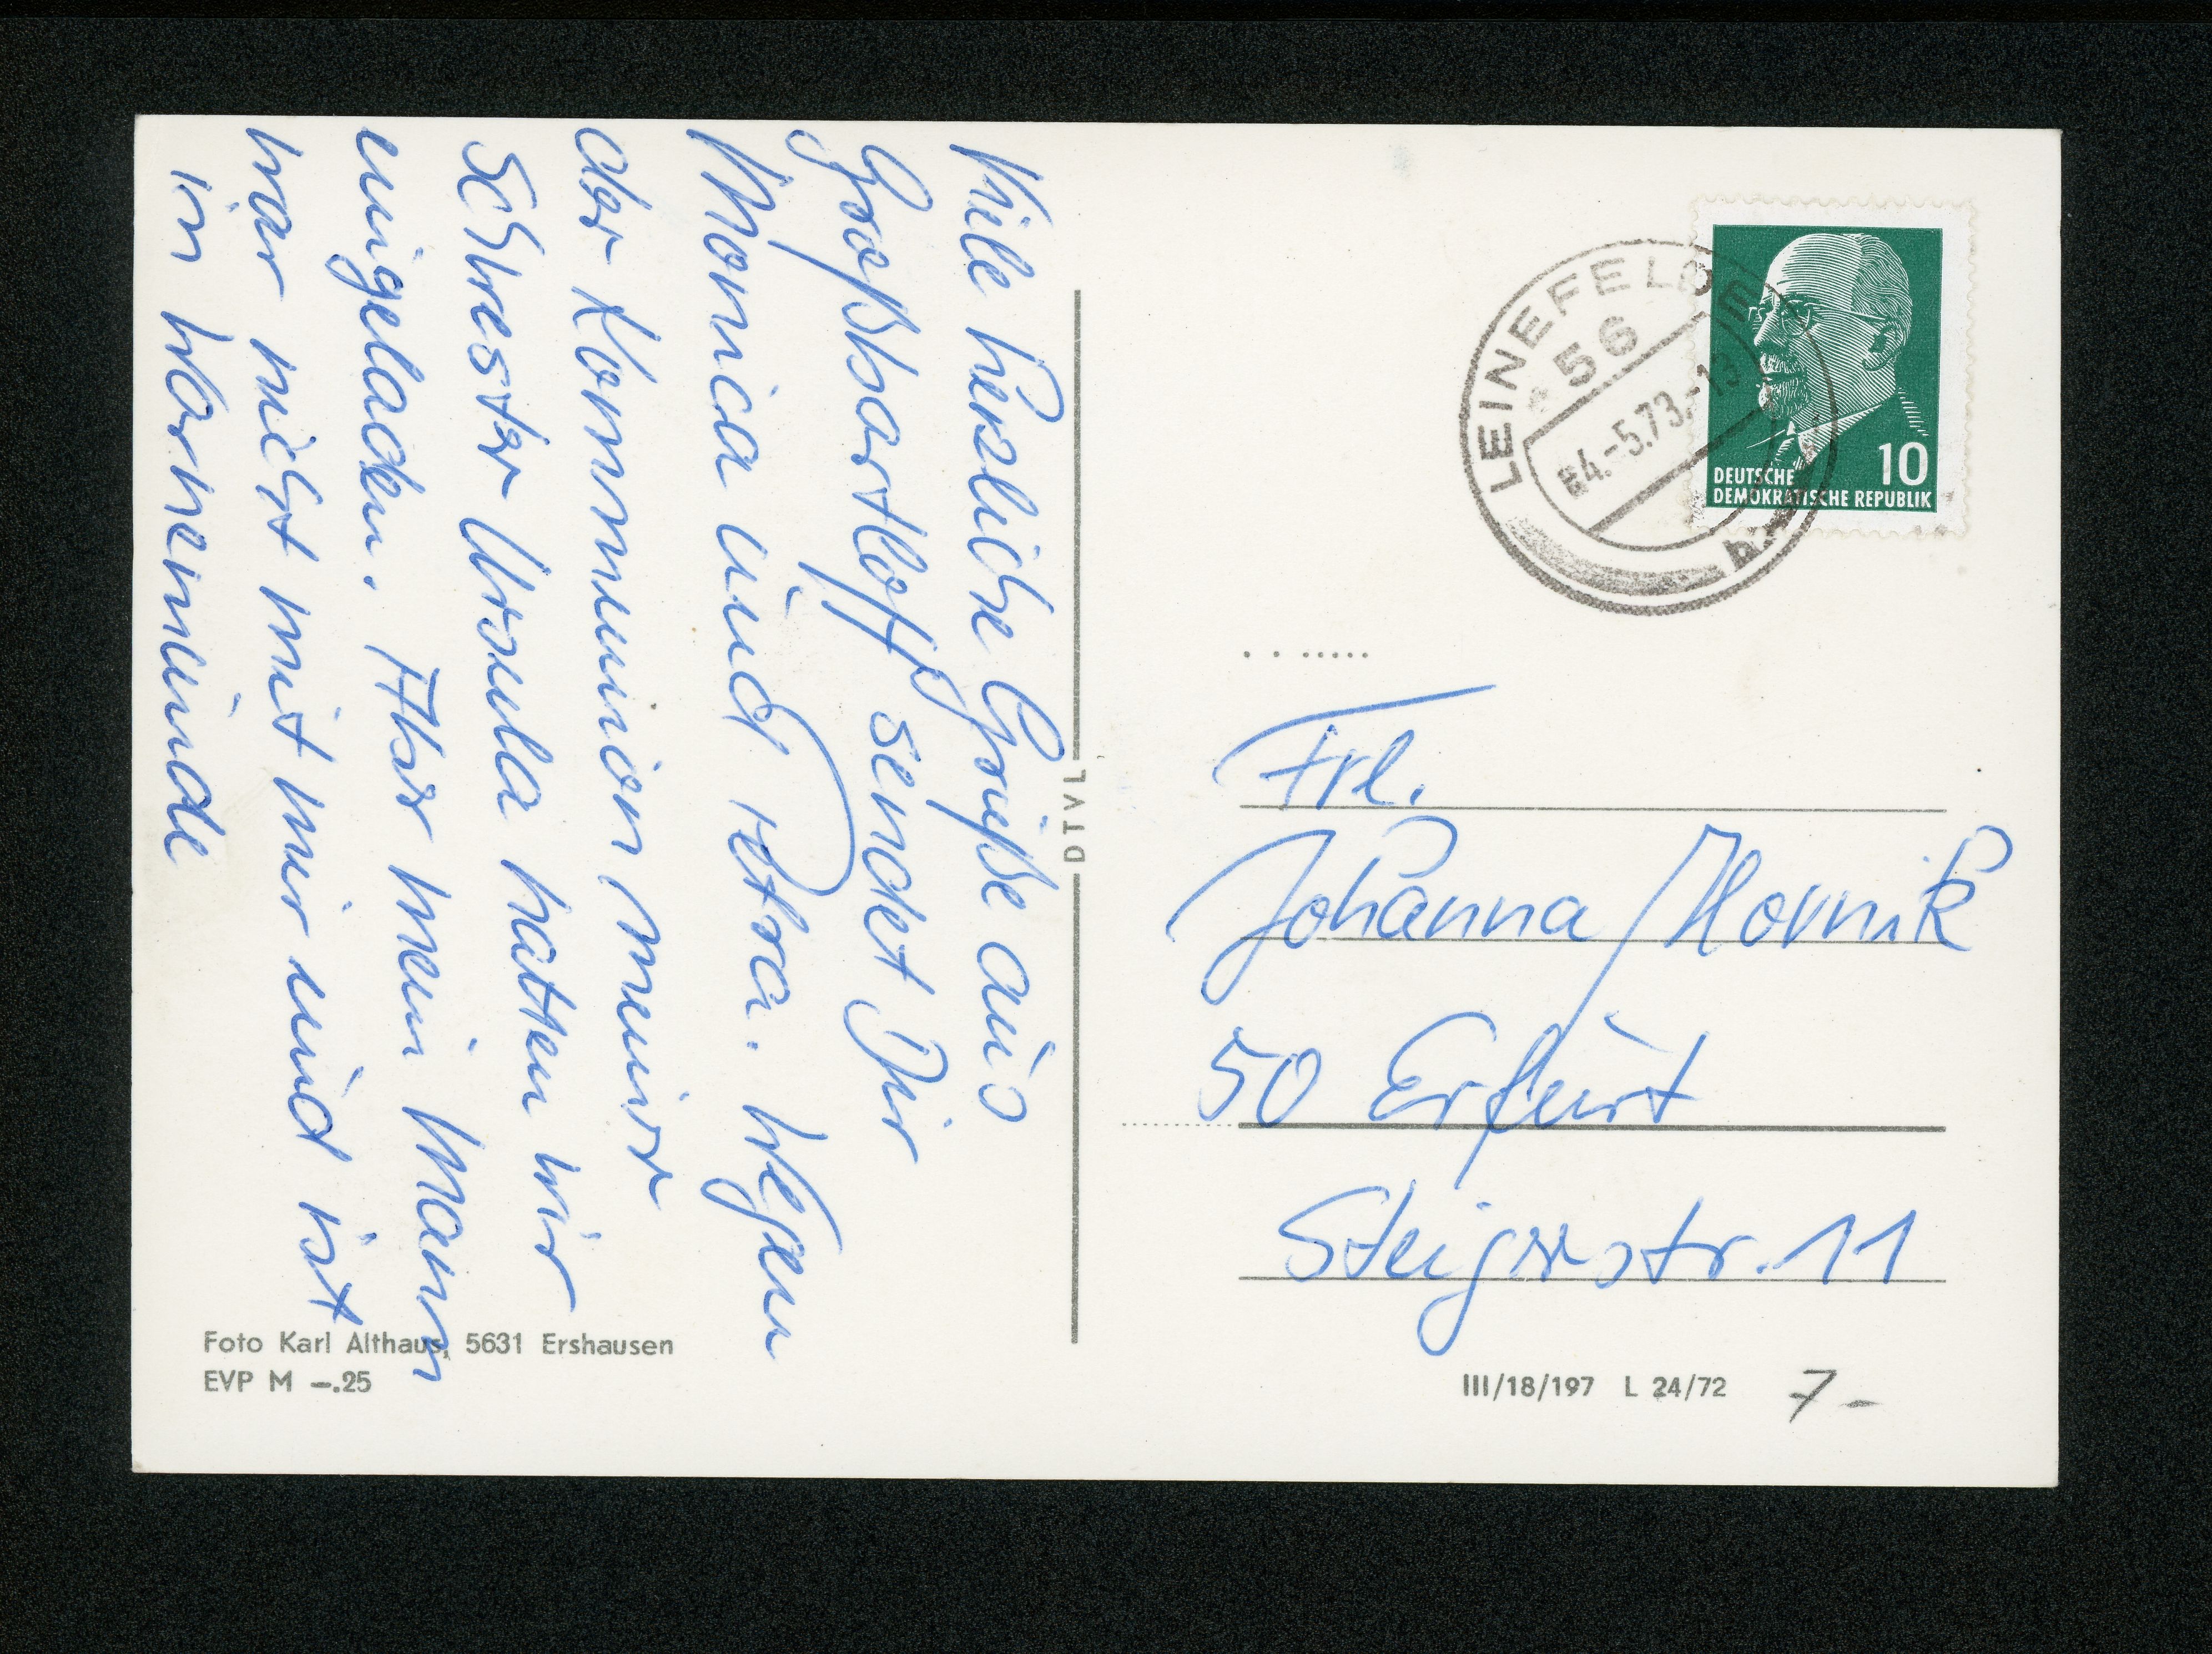 Viele herzliche Grüße aus
Großbartloff sendet Dir
Monica und Petra. Wegen
der Kommunion meiner
Schwester Ursula hatten wir
eingeladen. Aber mein Mann
war nicht mit mir und ist
in Warnemünde
Foto Karl Althaus, 5631 Ershausen
EVP M —.25
DTVL
LEINEFELDE
56
4.-5.73.-13
10
DEUTSCHE
DEMOKRATISCHE REPUBLIK
Frl.
Johanna Hornik
50 Erfurt
Steigerstr. 11
III/18/197 L 24/72
7.-